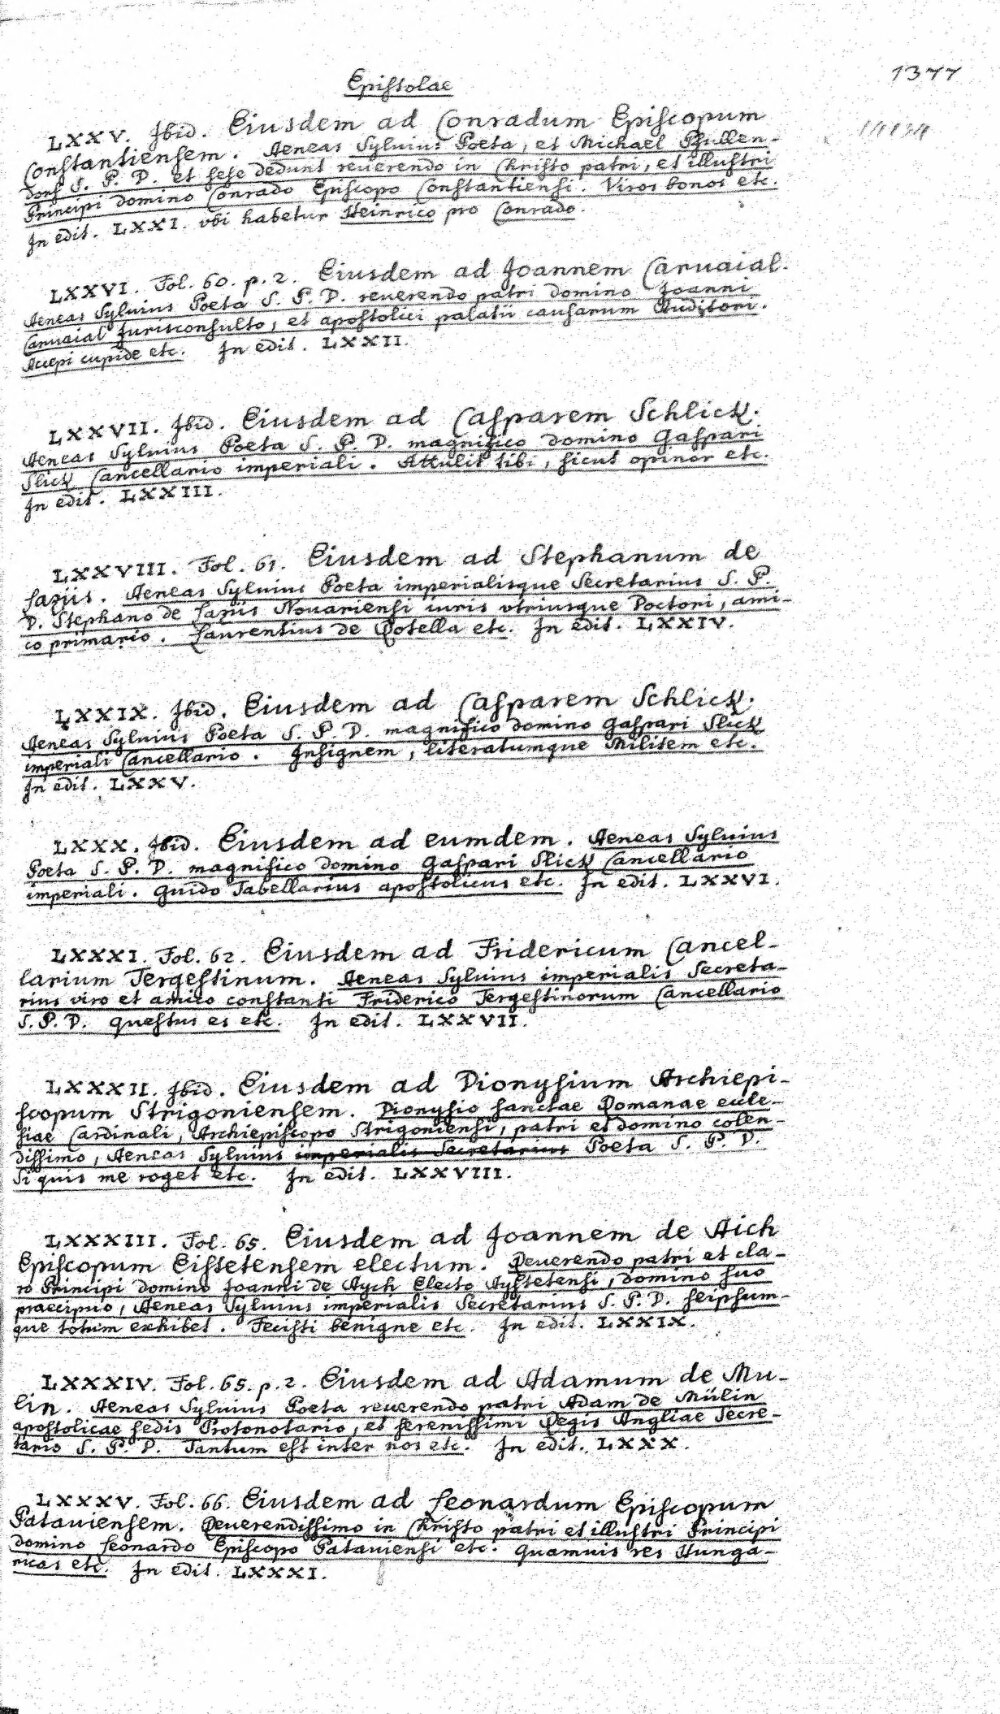 Epistolae
1377
LXXV. Ibid. Eiusdem ad Conradum Episcopum
Constantiensem. Aeneas Sylvius Poeta, et Michael Pfullen-
dorf S. P. D. et sese dedunt reuerendo in Christo patri, et illustri
Principi domino Conrado Episcopo Constantiensi. Viros bonos etc.
In edit. LXXI. vbi habetur Heinrico pro Conrado.
LXXVI. Fol. 60. p. 2. Eiusdem ad Joannem Caruaial.
Aeneas Sylvius Poeta S. P. D. reuerendo patri domino Joanni
Caruaial Jurisconsulto, et apostolici palatii causarum Auditori.
Accepi cupide etc. In edit. LXXII.
LXXVII. Ibid. Eiusdem ad Casparem Schlick.
Aeneas Sylvius Poeta S. P. D. magnifico domino Gaspari
Slick Cancellario imperiali. Attulit tibi, sicut opinor etc.
In edit. LXXIII.
LXXVIII. Fol. 61. Eiusdem ad Stephanum de
Fazijs. Aeneas Sylvius Poeta imperialisque Secretarius S. P.
D. Stephano de Fazijs Nouariensi iuris vtriusque Doctori, ami-
co primario. Laurentius de Rotella etc. In edit. LXXIV.
LXXIX. Ibid. Eiusdem ad Casparem Schlick.
Aeneas Sylvius Poeta S. P. D. magnifico domino Gaspari Slick
imperiali Cancellario. Insignem, literatumque Militem etc.
In edit. LXXV.
LXXX. Ibid. Eiusdem ad eumdem. Aeneas Sylvius
Poeta S. P. D. magnifico domino Gaspari Slick Cancellario
imperiali. Guido Tabellarius apostolicus etc. In edit. LXXVI.
LXXXI. Fol. 62. Eiusdem ad Fridericum Cancel-
larium Tergestinum. Aeneas Sylvius imperialis Secreta-
rius viro et amico constanti Friderico Tergestinorum Cancellario
S. P. D. Questus es etc. In edit. LXXVII.
LXXXII. Ibid. Eiusdem ad Dionysium Archiepi-
scopum Strigoniensem. Dionysio sanctae Romanae eccle-
siae Cardinali, Archiepiscopo Strigoniensi, patri et domino colen-
dissimo, Aeneas Sylvius imperialis Secretarius Poeta S. P. D.
Si quis me roget etc. In edit. LXXVIII.
LXXXIII. Fol. 65. Eiusdem ad Joannem de Aich
Episcopum Eissetensem electum. Reuerendo patri et cla-
ro Principi domino Joanni de Aych Electo Aystetensi, domino suo
praecipuo, Aeneas Sylvius imperialis Secretarius S. P. D. seipsum-
que totum exhibet. Fecisti benigne etc. In edit. LXXIX.
LXXXIV. Fol. 65. p. 2. Eiusdem ad Adamum de Mu-
lin. Aeneas Sylvius Poeta reuerendo patri Adam de Mülin
apostolicae sedis Protonotario, et serenissimi Regis Angliae Secre-
tario S. P. D. Tantum est inter nos etc. In edit. LXXX.
LXXXV. Fol. 66. Eiusdem ad Leonardum Episcopum
Patauiensem. Reuerendissimo in Christo patri et illustri Principi
domino Leonardo Episcopo Patauiensi etc. Quamuis res Hunga-
ricas etc. In edit. LXXXI.